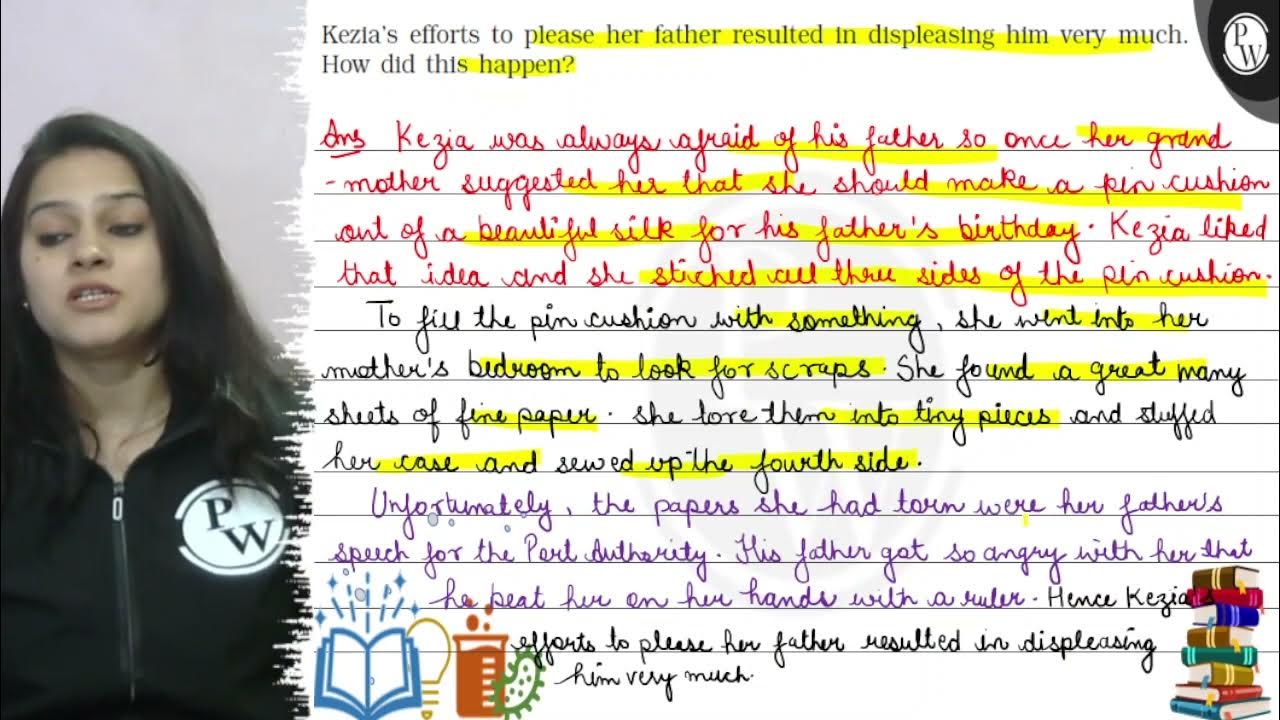 Kezia's efforts to please her father resulted in displeasing him very much.
How did this happen?
PW
Ans Kezia was always afraid of his father so once her grand
-mother suggested her that she should make a pin cushion
out of a beautiful silk for his father's birthday. Kezia liked
that idea and she stiched all three sides of the pin cushion.
To fill the pin cushion with something, she went into her
mother's bedroom to look for scraps. She found a great many
sheets of fine paper. She tore them into tiny pieces and stuffed
her case and sewed up the fourth side.
Unfortunately, the papers she had torn were her father's
speech for the Port Authority. His father got so angry with her that
he beat her on her hands with a ruler. Hence Kezia's
efforts to please her father resulted in displeasing
him very much.
PW